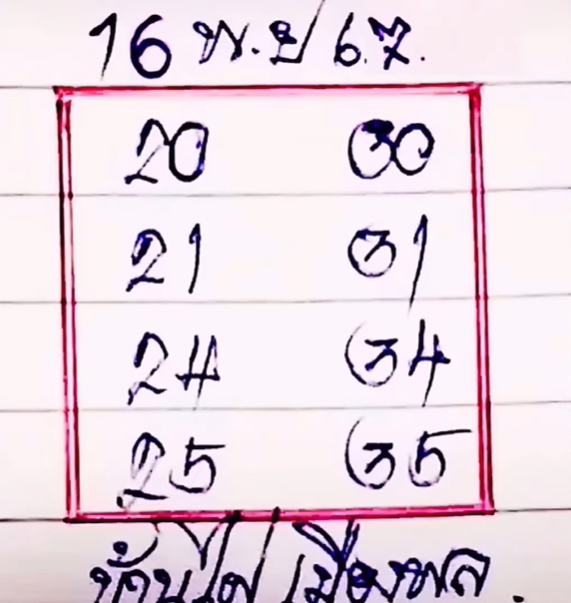 16 พ.ย 67.
20 30
21 31
24 34
25 35
บ้านไผ่ เมืองพล.